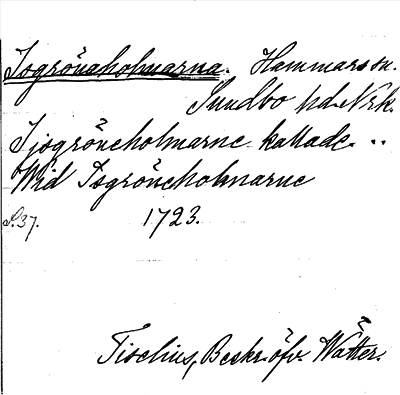 Isgrönaholmarna. Hammars sn.
Sundbo hd. Nrk.
Isjogröneholmarne kallade ..
Wid Isgröneholmarne
S. 37. 1723.
Tiselius, Beskr. öfv. Wätter.